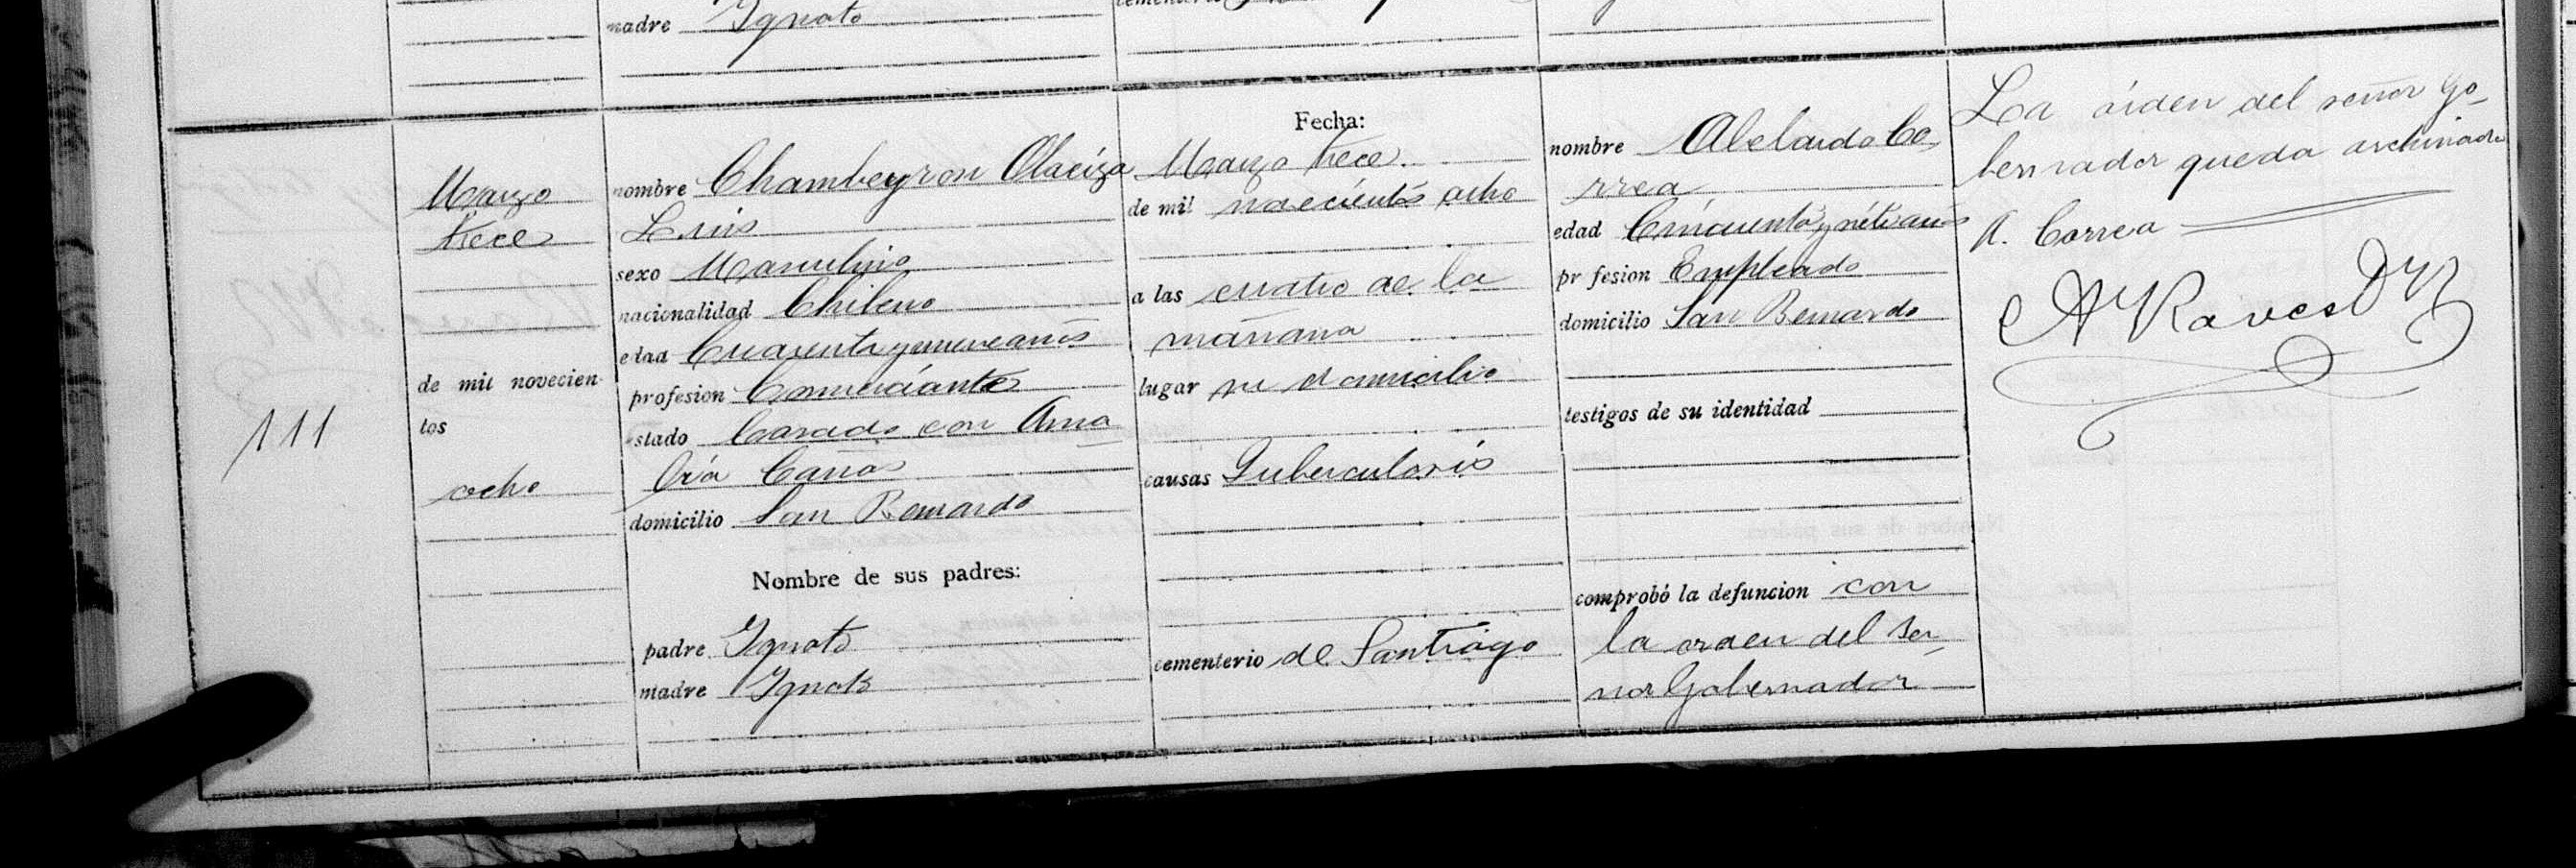 madre Ignoto
111
Marzo
trece
de mil novecien-
tos
ocho
nombre Chambeyron Olaciza
Luis
sexo Masculino
nacionalidad Chileno
edad Cuarenta y nueve años
profesion Comerciante
estado Casado con Ama
lia Cañas
domicilio San Bernardo
Nombre de sus padres:
padre Ignoto
madre Ignota
Fecha:
Marzo trece
de mil novecientos ocho
a las cuatro de la
mañana
lugar su domicilio
causas Tuberculosis
cementerio de Santiago
nombre Abelardo Co-
rrea
edad Cincuenta y siete años
pr fesion Empleado
domicilio San Bernardo
testigos de su identidad
comprobó la defuncion con
la orden del Se-
ñor Gobernador
La órden del señor Go-
bernador queda archivada
A. Correa